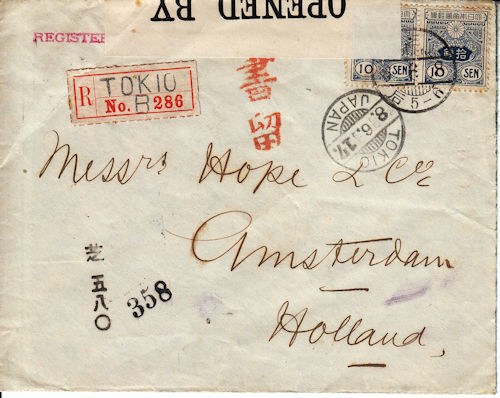 OPENED BY
REGISTER
R TOKIO
No. B 286
書留
10 SEN
拾銭
10 SEN
TOKIO
8. 6. 17.
JAPAN
5-6
Messrs Hope & Co
Amsterdam
Holland,
芝五八〇
358